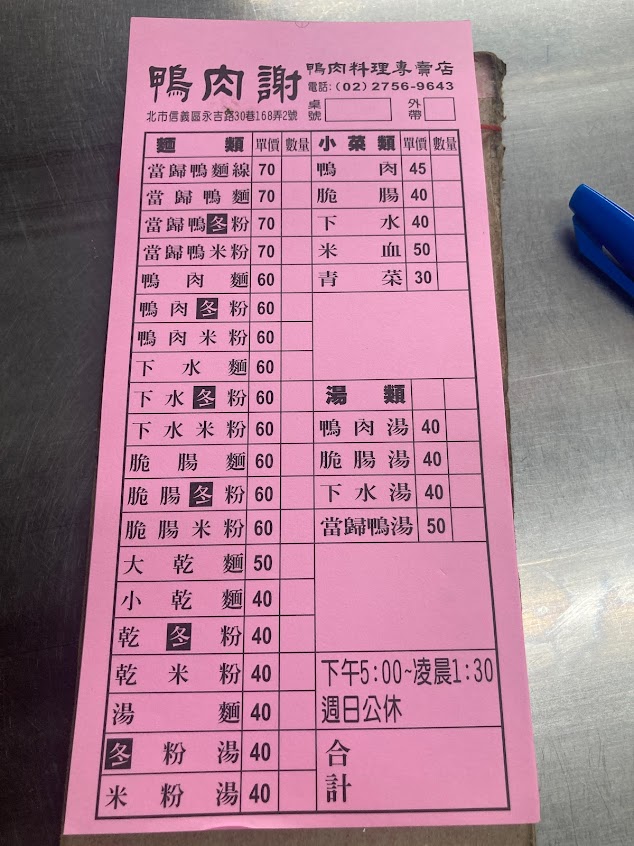 鴨肉謝 鴨肉料理專賣店
電話:(02) 2756-9643
北市信義區永吉路30巷168弄2號 桌號 外帶
麵類 單價 數量 小菜類 單價 數量
當歸鴨麵線 70 鴨肉 45
當歸鴨麵 70 脆腸 40
當歸鴨冬粉 70 下水 40
當歸鴨米粉 70 米血 50
鴨肉麵 60 青菜 30
鴨肉冬粉 60
鴨肉米粉 60
下水麵 60
下水冬粉 60 湯類
下水米粉 60 鴨肉湯 40
脆腸麵 60 脆腸湯 40
脆腸冬粉 60 下水湯 40
脆腸米粉 60 當歸鴨湯 50
大乾麵 50
小乾麵 40
乾冬粉 40
乾米粉 40 下午5:00~凌晨1:30
湯麵 40 週日公休
冬粉湯 40 合計
米粉湯 40